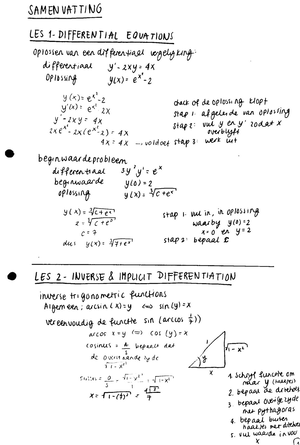 SAMENVATTING
LES 1 - DIFFERENTIAL EQUATIONS
oplossen van een differentiaal vergelijking
differentiaal y' - 2xy = 4x
oplossing y(x) = e^x² - 2
y(x) = e^x² - 2
y'(x) = e^x² 2x
y' - 2xy = 4x
2xe^x² - 2x(e^x² - 2) = 4x
4x = 4x ... voldoet
check of de oplossing klopt
stap 1: afgeleide van oplossing
stap 2: vul y en y' zodat x
overblijft
stap 3: werk uit
beginwaardeprobleem
differentiaal 3y²y' = e^x
beginwaarde y(0) = 2
oplossing y(x) = ³√(c+e^x)
y(x) = ³√(c+e^x)
2 = ³√(c+e⁰)
c = 7
dus y(x) = ³√(7+e^x)
stap 1: vul in, in oplossing
waarbij y(0)=2
x=0 en y=2
stap 2: bepaal c
LES 2 - INVERSE & IMPLICIT DIFFERENTIATION
inverse trigonometric functions
Algemeen: arcsin(x)=y ⇔ sin(y)=x
vereenvoudig de functie sin(arccos
arccos x = y ⇔ cos(y) = x
cosinus =
bepaalt dat
de overstaande zijde
√1-x²
sinus =
√1-x²
1. Schrijf functie om
naar y
2. bepaal de driehoek
3. bepaal overige zijde
met pythagoras
4. bepaal
5. vul waarde in voor
x